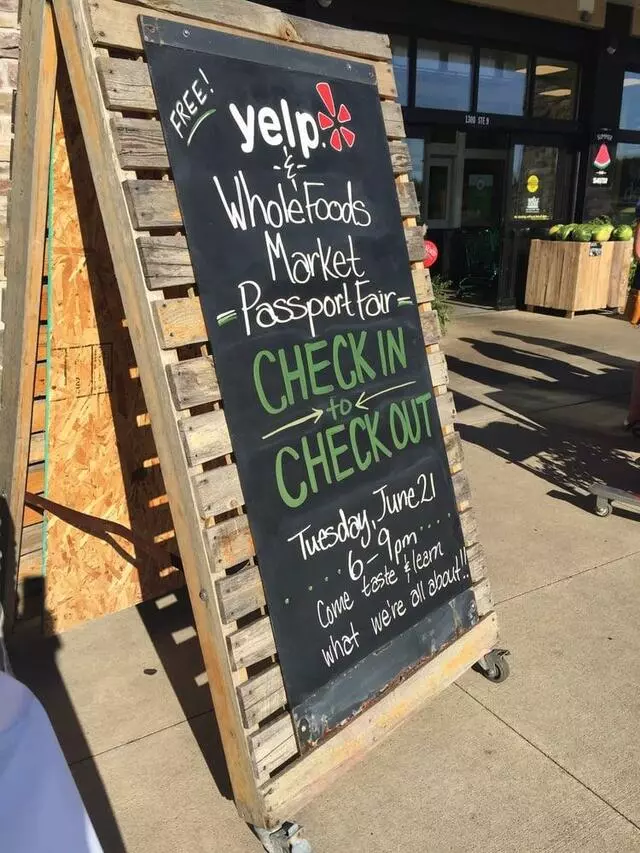 FREE!
yelp
&
Whole Foods
Market
Passport Fair
CHECK IN
to
CHECK OUT
Tuesday, June 21
6-9pm
Come taste & learn
what we're all about!!
1300 STE 9